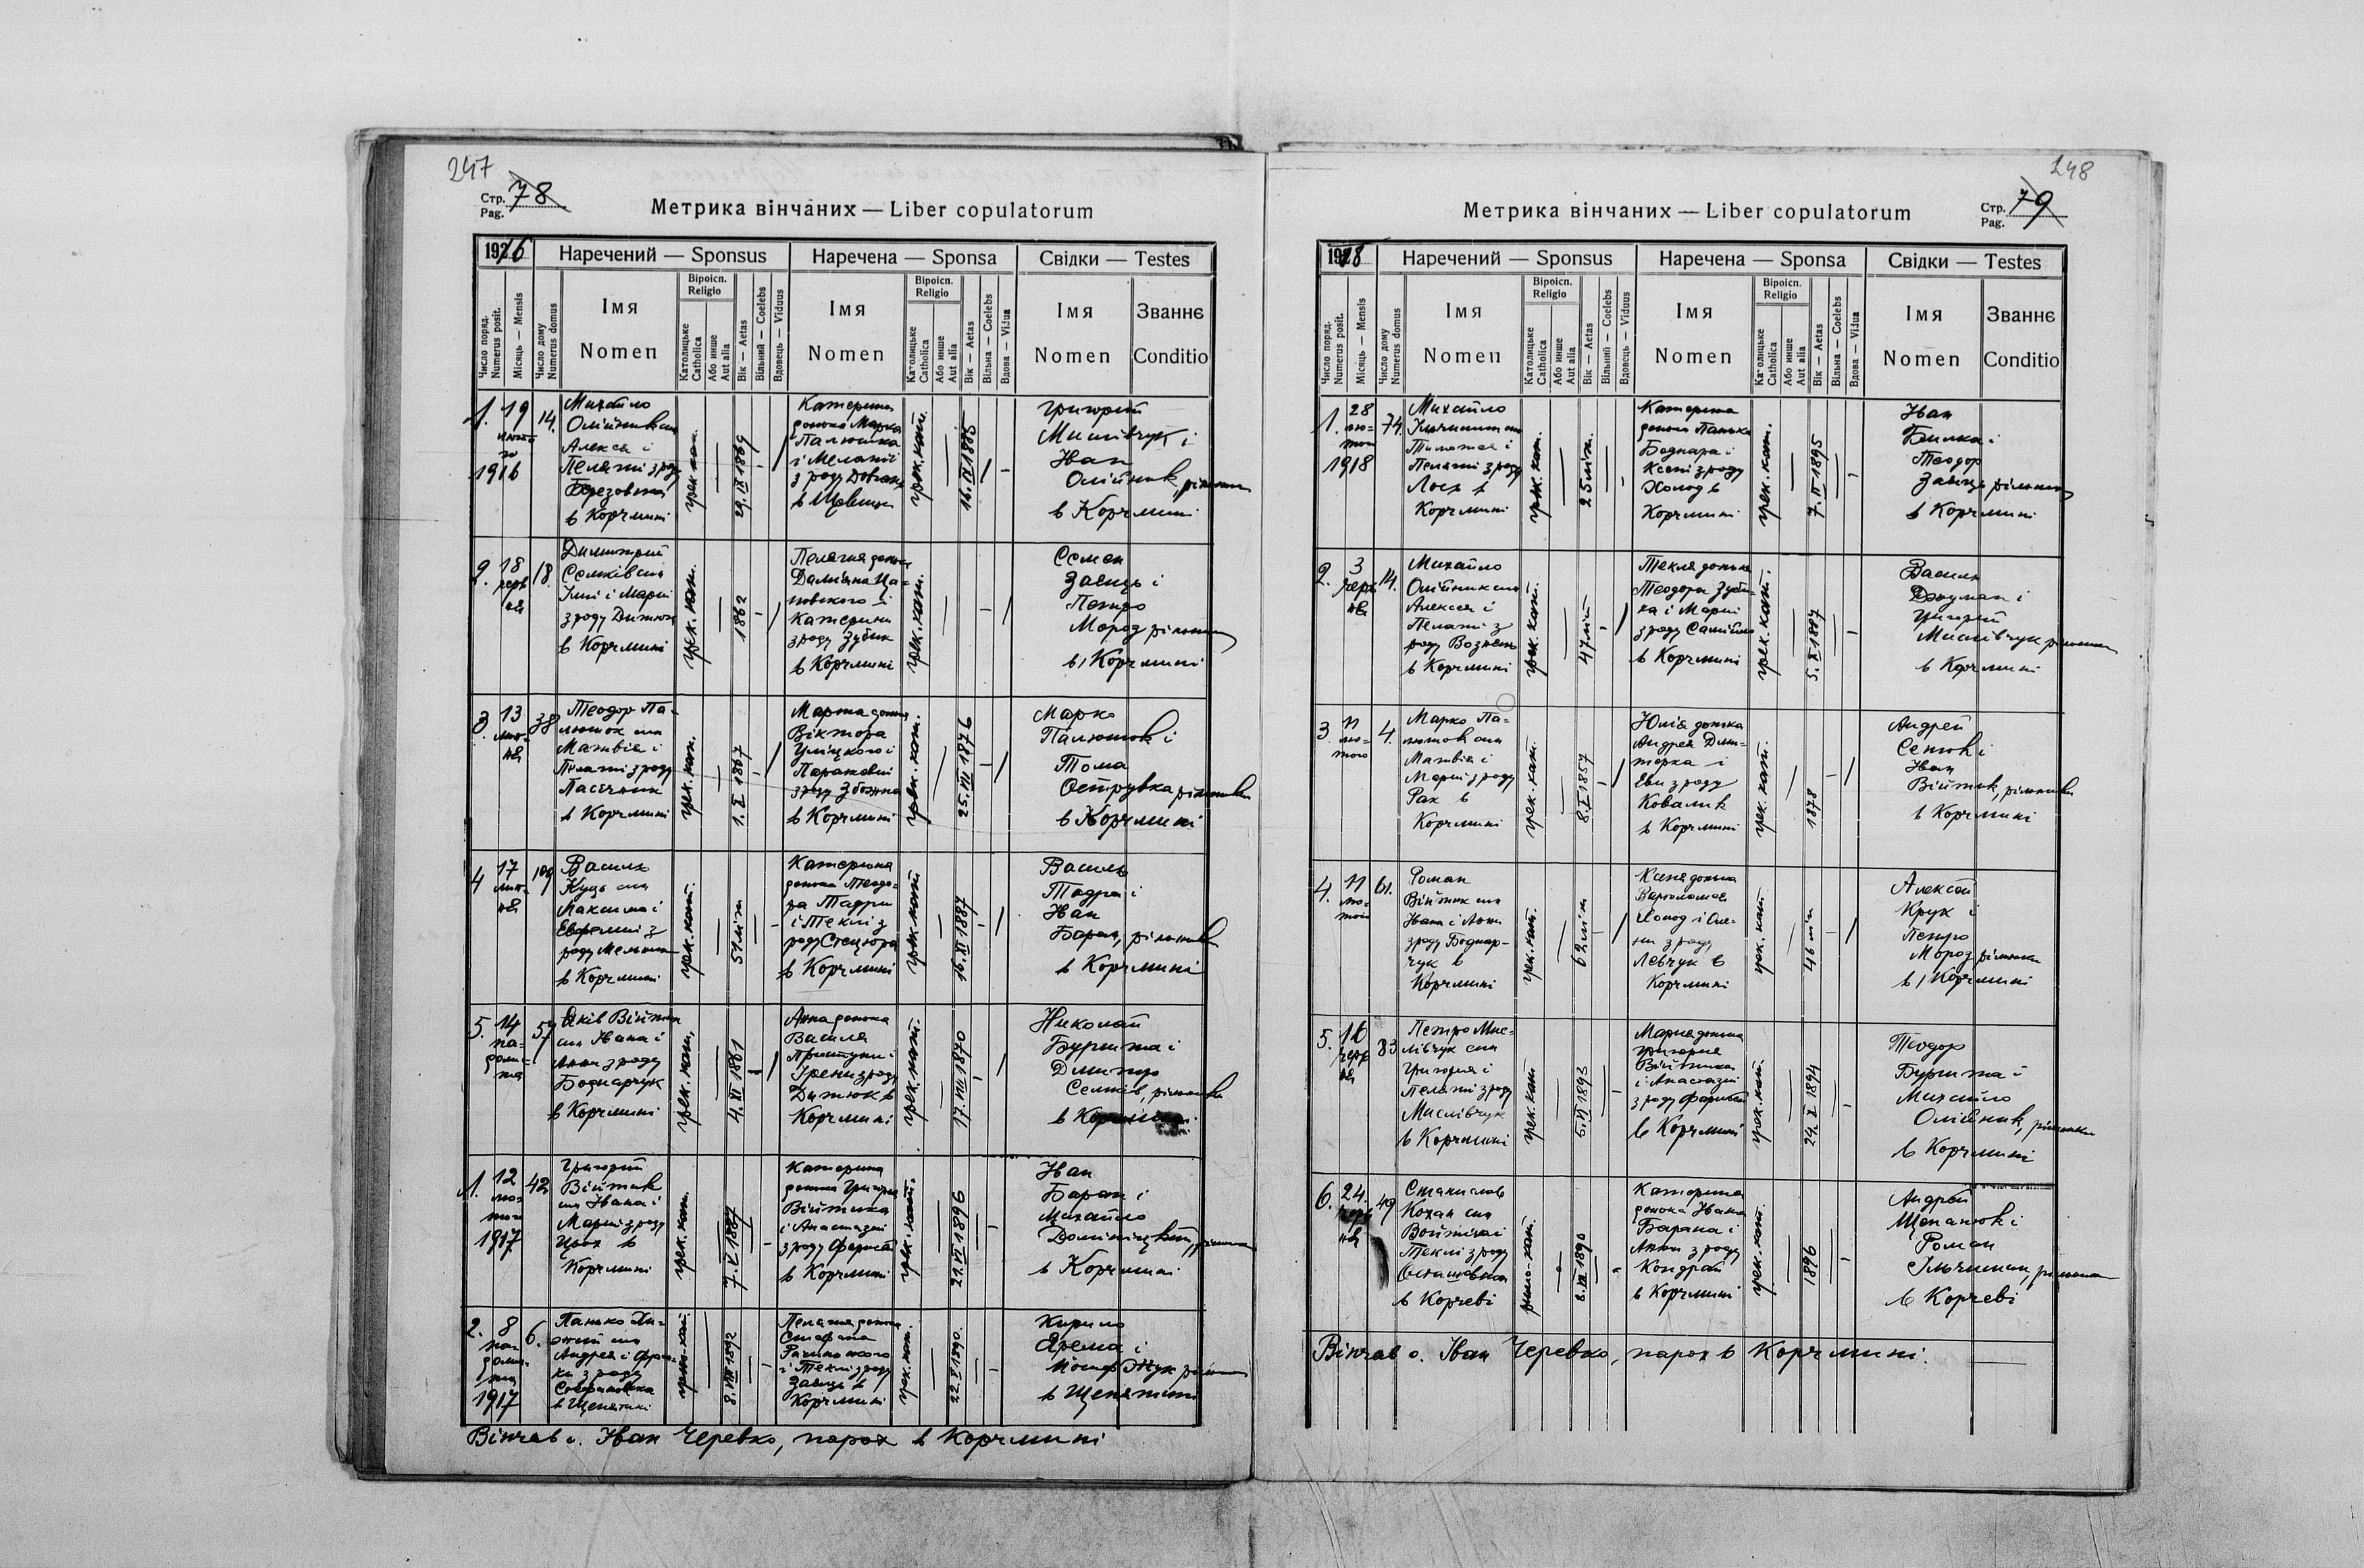 247
Стр.
Pag.
78
Метрика вінчаних — Liber copulatorum
1916
Наречений — Sponsus
Наречена — Sponsa
Свідки — Testes
Число поряд.
Numerus posit.
Місяць — Mensis
Число дому
Numerus domus
Імя
Nomen
Віроісп.
Religio
Католицьке
Catholica
Або инше
Aut alia
Вік — Aetas
Вільний — Coelebs
Вдовець — Viduus
Імя
Nomen
Віроісп.
Religio
Католицьке
Catholica
Або инше
Aut alia
Вік — Aetas
Вільна — Coelebs
Вдова — Vidua
Імя
Nomen
Званнє
Conditio
1.
19
1916
14.
Михайло
Олійник син
Алексія і
Пелагії з роду
в Корчмині
грек. кат.
29. IX 1869
Катерина
донька Марка
Палюшка
і Меланії
з роду
грек. кат.
16. IV 1885
Григорий
Мислівчук і
Іван
Олійник, рільники
в Корчмині
2.
18
черв
ня
18.
Димитрий
Семків син
Ілиї і Марії
з роду Дитюк
в Корчмині
грек. кат.
1862
Пелагия донька
Катерини
з роду Зубик
в Корчмині
грек. кат.
Семен
Заєць і
Петро
Мороз рільники
в Корчмині
3.
13
лип-
ня
38
Теодор Па-
люшок син
Матвія і
Пелагії з роду
Пасічник
в Корчмині
грек. кат.
1. X 1867
Марта донька
Віктора
в Корчмині
грек. кат.
25. III 1876
Марко
Палюшок і
Тома
Острувка рільники
в Корчмині
4
17
лип-
ня
109
Василь
Куць син
Максима і
Евфемії з
роду
в Корчмині
грек. кат.
51 літ
Катерина
донька Теодо-
ра Тадри
і Теклі з
роду Стецюра
в Корчмині
грек. кат
16. IV 1887
Василь
Тадра і
Іван
Баран, рільники
в Корчмині
5.
14
па-
доли-
ста
57
Яків Війтик
син Івана і
Анни з роду
Боднарчук
в Корчмині
грек. кат.
4. XI 1861
Анна донька
Василя
Ірени з роду
Дитюк в
Корчмині
грек. кат.
17. VIII 1870
Николай
Буришта і
Дмитро
Семків, рільники
в
1.
12
лю-
того
1917
42
Григорий
Війтик
син Івана і
Марії з роду
Цьох в
Корчмині
грек. кат.
7. V 1887
Катерина
донька Григорія
Війтика
і Анастазії
з роду
в Корчмині
грек. кат.
21. XI 1896
Іван
Баран і
Михайло
рільники
в Корчмині
2.
8
па-
доли-
ста
1917
6.
Панько
син
Андрея і
з роду
в Щепятині
грек. кат
8. VIII 1892
Пелагия донька
Стефана
і Теклі з роду
Заєць в
Корчмині
грек. кат.
22. X 1890.
Кирило
Ярема і
Йосиф Жук рільники
в Щепятині
Вінчав о. Іван Черевко, парох в Корчмині
248
Стр.
Pag.
79
Метрика вінчаних — Liber copulatorum
1918
Наречений — Sponsus
Наречена — Sponsa
Свідки — Testes
Число поряд.
Numerus posit.
Місяць — Mensis
Число дому
Numerus domus
Імя
Nomen
Віроісп.
Religio
Католицьке
Catholica
Або инше
Aut alia
Вік — Aetas
Вільний — Coelebs
Вдовець — Viduus
Імя
Nomen
Віроісп.
Religio
Католицьке
Catholica
Або инше
Aut alia
Вік — Aetas
Вільна — Coelebs
Вдова — Vidua
Імя
Nomen
Званнє
Conditio
1.
28
лю-
того
1918
74.
Михайло
Тимотея і
Пелагії з роду
в
Корчмині
грек. кат.
25 літ.
Катерина
донька Панька
Боднара і
Ксені з роду
Холод в
Корчмині
грек. кат.
7. II 1895
Іван
Теодор
Заєць рільники
в Корчмині
2.
3
черв
ня
14.
Михайло
Олійник син
Алексія і
Пелагії з
роду
в Корчмині
грек. кат.
47 літ
Текля донька
Теодора Зуби-
ка і Марії
з роду
в Корчмині
грек. кат.
5. X 1887
Василь
Джуман і
Григорий
Мислівчук рільники
в Корчмині
3
11
лю-
того
4.
Марко Па-
люшок син
Матвія і
Марії з роду
Рак в
Корчмині
грек. кат.
8. I 1857
Юлія донька
Андрея Дми-
терка і
Еви з роду
Ковалик
в Корчмині
грек. кат.
1878
Андрей
Сенюк і
Іван
Війтик, рільники
в Корчмині
4.
11
лю-
того
61.
Роман
Війтик син
Івана і Анни
з роду Боднар-
чук в
Корчмині
грек. кат.
62 літ
Ксеня донька
Вартоломея
Холод і Оле-
ни з роду
Левчук в
Корчмині
грек. кат
46 літ
Алексій
Крук і
Петро
Мороз рільники
в Корчмині
5.
16
черв
ня
83
Петро Мис-
лівчук син
Григория і
Пелагії з роду
Мислівчук
в Корчмині
грек. кат
5. VI 1893
Мария донька
Григория
Війтика
і Анастазії
з роду
в Корчмині
грек. кат.
24. X 1894
Теодор
Буришта і
Михайло
Олійник, рільники
в Корчмині
6.
24.
ня
49
Станислав
Кохан син
Войтіха і
Теклі з роду
в Корчеві
римо-кат.
1890
Катерина
донька Івана
Барана і
Анни з роду
Кондрат
в Корчмині
грек. кат.
1896
Андрей
Щепанюк і
Роман
рільники
в Корчеві
Вінчав о. Іван Черевко, парох в Корчмині.